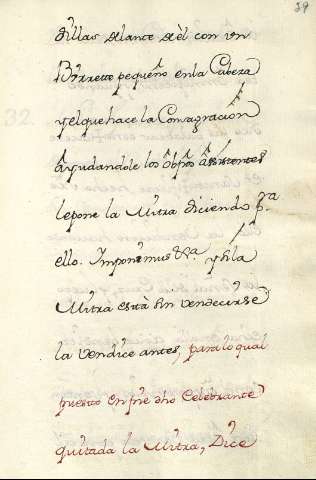 39
dillas delante de èl con vn
Birrette pequeño en la Cabeza
y el que hace la Consagracion
ayudandole los obpos assistentes
le pone la Mitra diciendo pa
ello. Imponimus &a y si la
Mitra està sin vendecirse
la vendice antes, para lo qual
puesto en pie dho Celebrante
quitada la Mitra, Dice